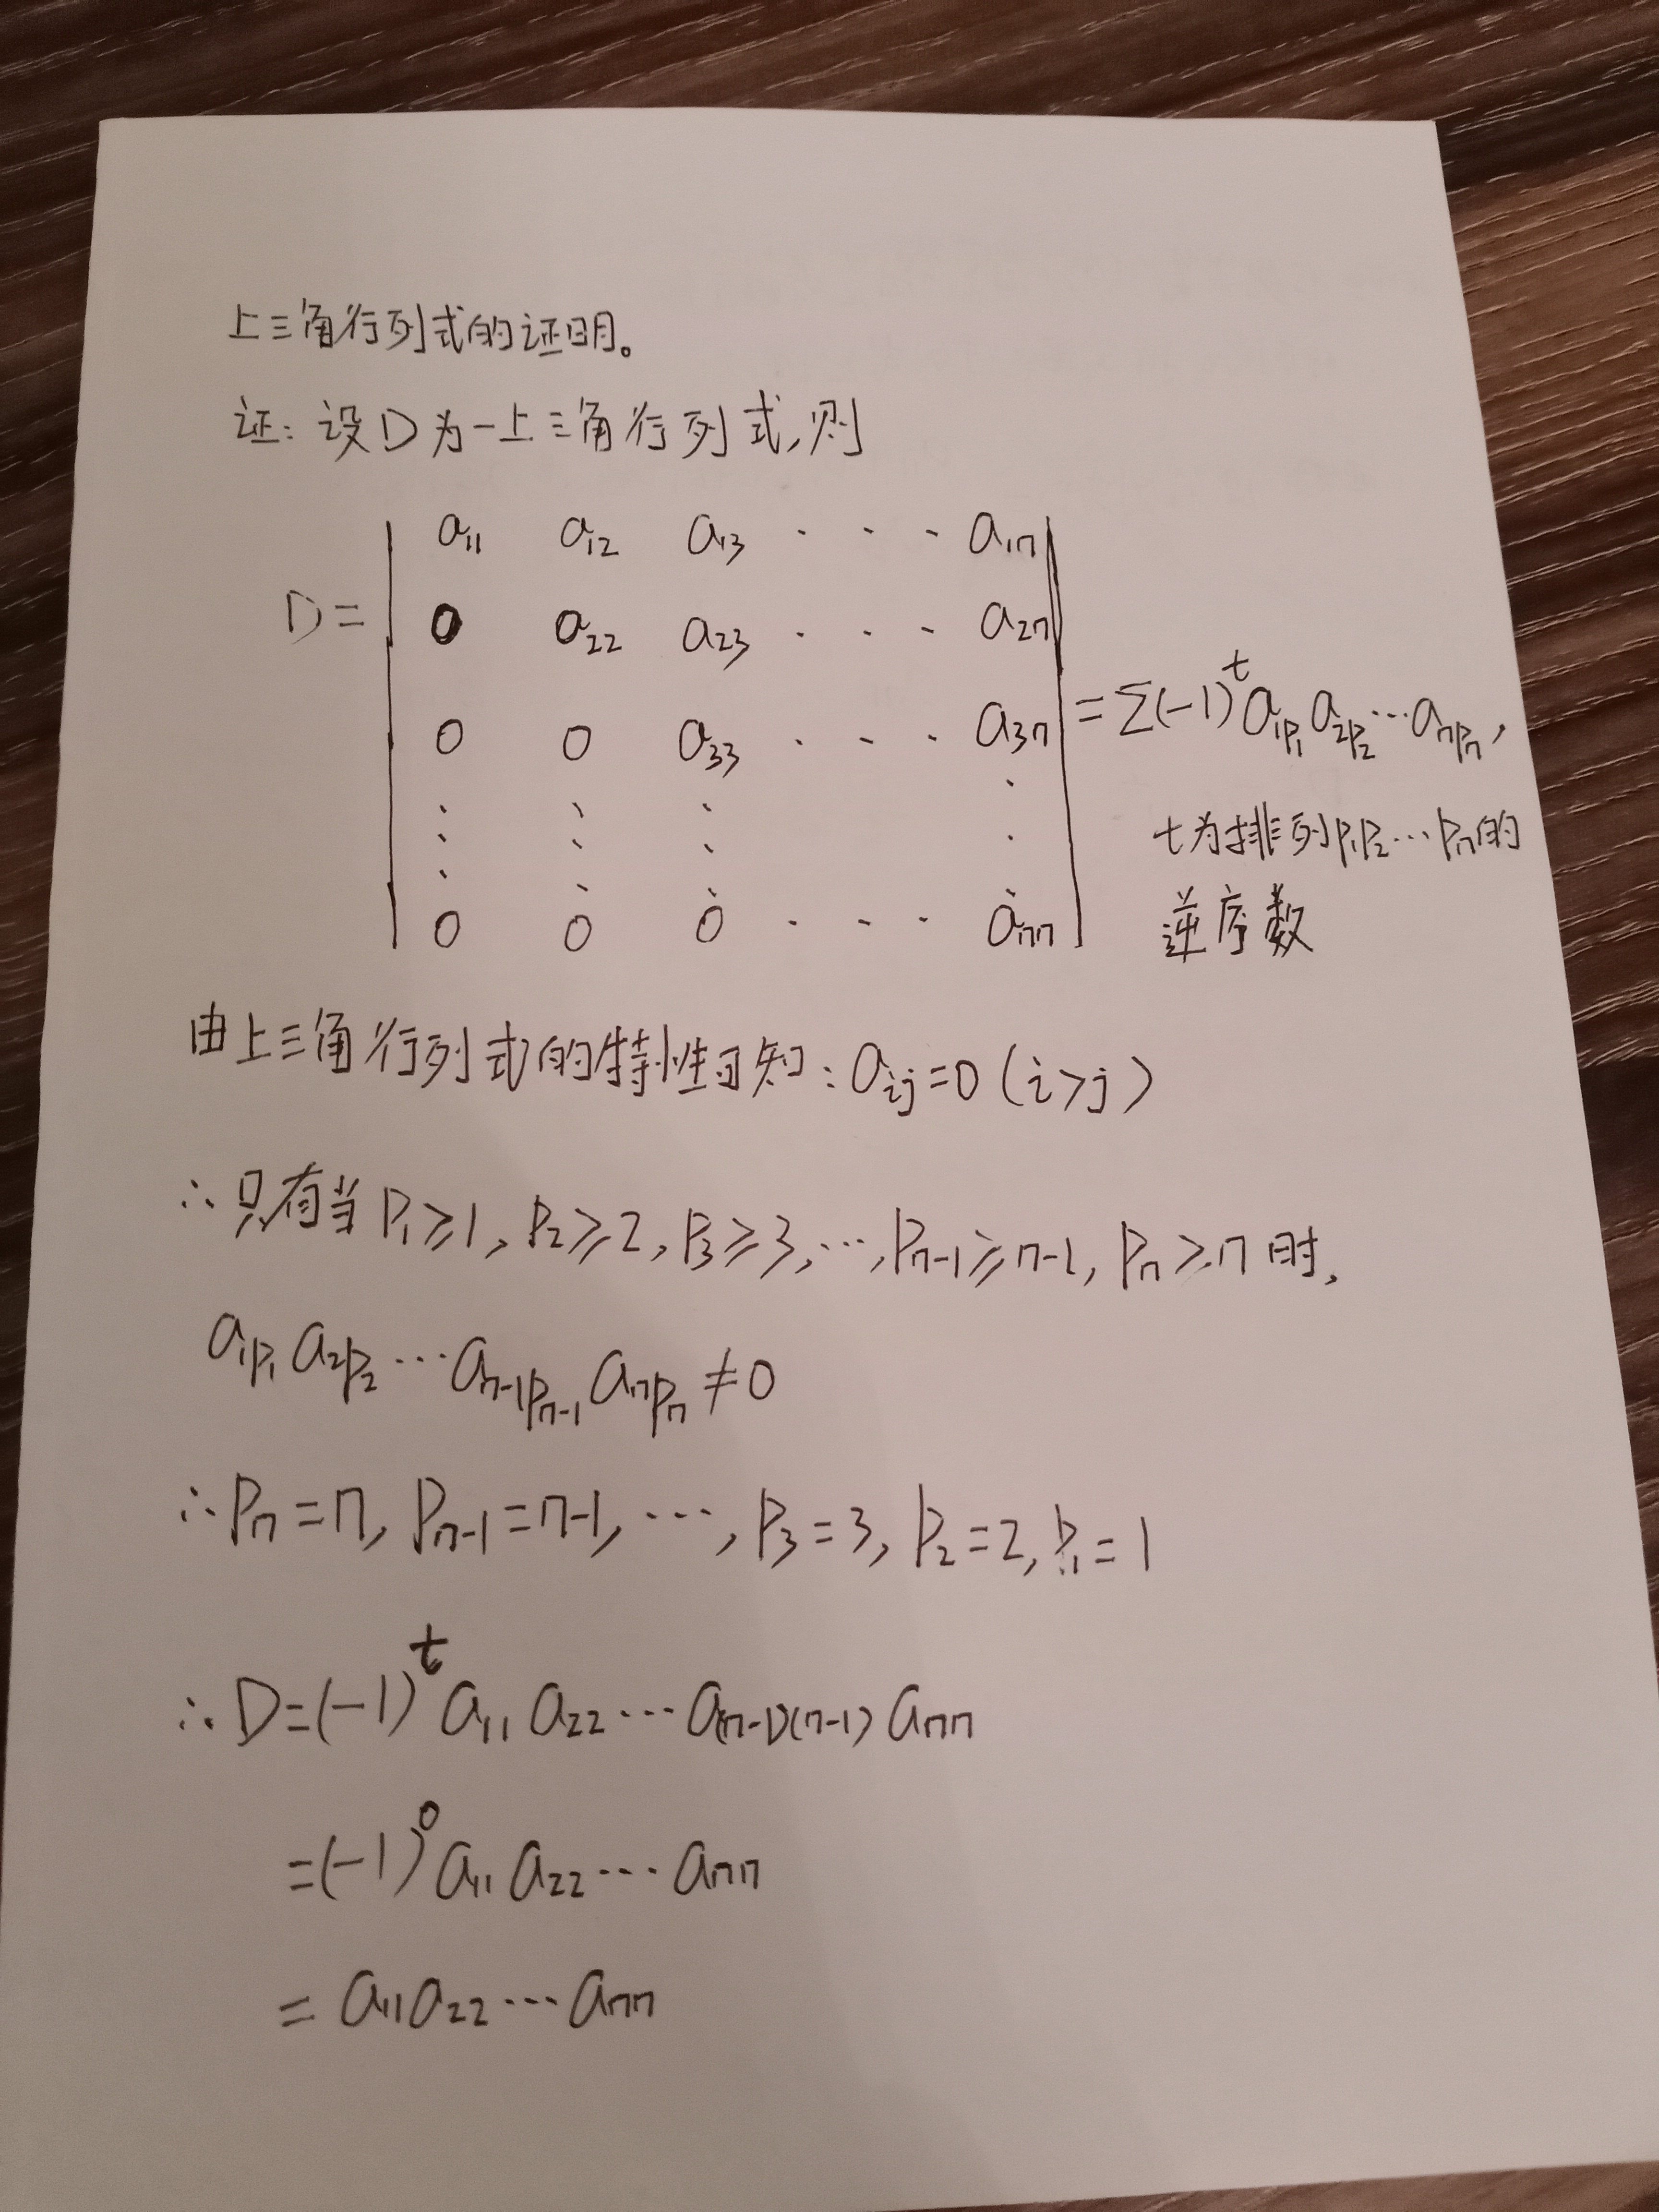 上三角行列式的证明。
证：设D为一上三角行列式，则
a₁₁ a₁₂ a₁₃ · · · a₁ₙ
D= 0 a₂₂ a₂₃ · · · a₂ₙ
0 0 a₃₃ · · · a₃ₙ =Σ(-1)ᵗa₁ₚ₁a₂ₚ₂···aₙₚₙ,
⋮ ⋮ ⋮ ⋮ t为排列p₁p₂···pₙ的
0 0 0 · · · aₙₙ 逆序数
由上三角行列式的特性可知：aᵢⱼ=0（i>j）
∴只有当P₁≥1, P₂≥2, P₃≥3,···,Pₙ₋₁≥n-1, Pₙ≥n时,
a₁ₚ₁a₂ₚ₂···aₙ₋₁ₚₙ₋₁aₙₚₙ≠0
∴Pₙ=n, Pₙ₋₁=n-1, ···, P₃=3, P₂=2, P₁=1
∴D=(-1)ᵗa₁₁a₂₂···a₍ₙ₋₁₎₍ₙ₋₁₎aₙₙ
=(-1)⁰a₁₁a₂₂···aₙₙ
=a₁₁a₂₂···aₙₙ